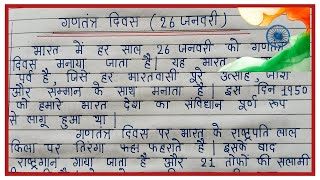 गणतंत्र दिवस ( 26 जनवरी )
भारत में हर साल 26 जनवरी को गणतंत्र
दिवस मनाया जाता है। यह भारत
पर्व है, जिसे हर भारतवासी पूरे उत्साह, जोश
और सम्मान के साथ मनाता है। इस दिन 1950
को हमारे भारत देश का संविधान पूर्ण रूप
से लागू हुआ था।
गणतंत्र दिवस पर भारत के राष्ट्रपति लाल
किला पर तिरंगा झंडा फहराते है। इसके बाद
राष्ट्रगान गाया जाता है और 21 तोपों की सलामी